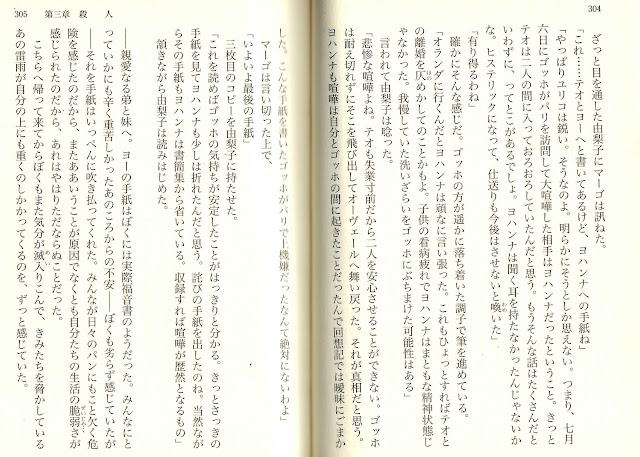 304
ざっと目を通した由梨子にマーゴは訊ねた。
「これ……テオとヨーへと書いてあるけど、ヨハンナへの手紙ね」
「やっぱりユリコは鋭い。そうなのよ。明らかにそうとしか思えない。つまり、七月
六日にゴッホがパリを訪問して大喧嘩した相手はヨハンナだったということ。きっと
テオは二人の間に入っておろおろしていたんだと思う。もうそんな話はたくさんだと
いわずに、ってとこがあるでしょ。ヨハンナは聞く耳を持たなかったんじゃないか
な。ヒステリックになって、仕送りも今後はさせないと喚いた」
「有り得るわね」
確かにそんな感じだ。ゴッホの方が遥かに落ち着いた調子で筆を進めている。
「オランダに行くんだとヨハンナは頑なに言い張った。これもひょっとすればテオと
の離婚を仄めかしてのことかもよ。子供の看病疲れでヨハンナはまともな精神状態じ
ゃなかった。我慢していた洗いざらいをゴッホにぶちまけた可能性はある」
言われて由梨子は唸った。
「悲惨な喧嘩よね。テオも失業寸前だから二人を安心させることができない。ゴッホ
は耐え切れずにそこを飛び出してオーヴェールへ舞い戻った。それが真相だと思う。
ヨハンナも喧嘩は自分とゴッホの間に起きたことだったんで回想記では曖昧にごまか
305 第三章 殺人
した。こんな手紙を書いたゴッホがパリで上機嫌だったなんて絶対にないわよ」
マーゴは言い切った上で、
「いよいよ最後の手紙」
三枚目のコピーを由梨子に持たせた。
「これを読めばゴッホの気持ちが安定したことがはっきりと分かる。きっとさっきの
手紙を見てヨハンナも少しは折れたんだと思う。詫びの手紙を出したのね。当然なが
らその手紙もヨハンナは書簡集から省いている。収録すれば喧嘩が歴然となるもの」
頷きながら由梨子は読みはじめた。
――親愛なる弟と妹へ。ヨーの手紙はぼくには実際福音書のようだった。みんなにと
っていかにも辛く重苦しかったあのころからの不安――ぼくも劣らず感じていたが
――それを手紙はいっぺんに吹き払ってくれた。みんなが日々のパンにもこと欠く危
険を感じたのだから、またああいうことが原因でなくとも自分たちの生活の脆弱さが
感じられたのだから、あれはやはりただならぬことだった。
こちらへ帰って来てからぼくもまた気分が滅入りこんで、きみたちを脅かしている
あの雷雨が自分の上にも重くのしかかってくるのを、ずっと感じていた。